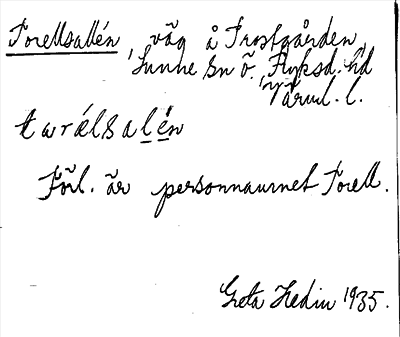 Forellsallén, väg å Prostgården,
Sunne sn ö., Fryksd. hd
Värml. l.
tωrælsalén
Förl. är personnamnet Forell.
Greta Hedin 1935.